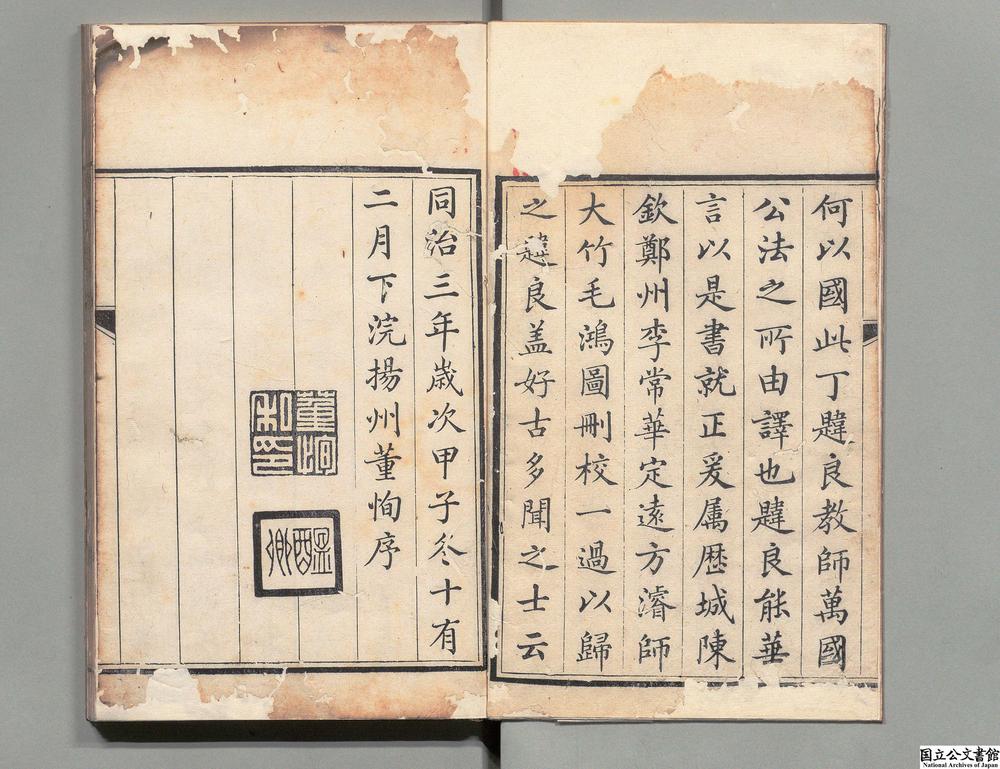 何以國此丁韙良教師萬國
公法之所由譯也韙良能華
言以是書就正爰属歴城陳
欽鄭州李常華定遠方濬師
大竹毛鴻圖刪校一過以歸
之韙良盖好古多聞之士云
同治三年歲次甲子冬十有
二月下浣揚州董恂序
董恂私印
醖卿
国立公文書館
National Archives of Japan